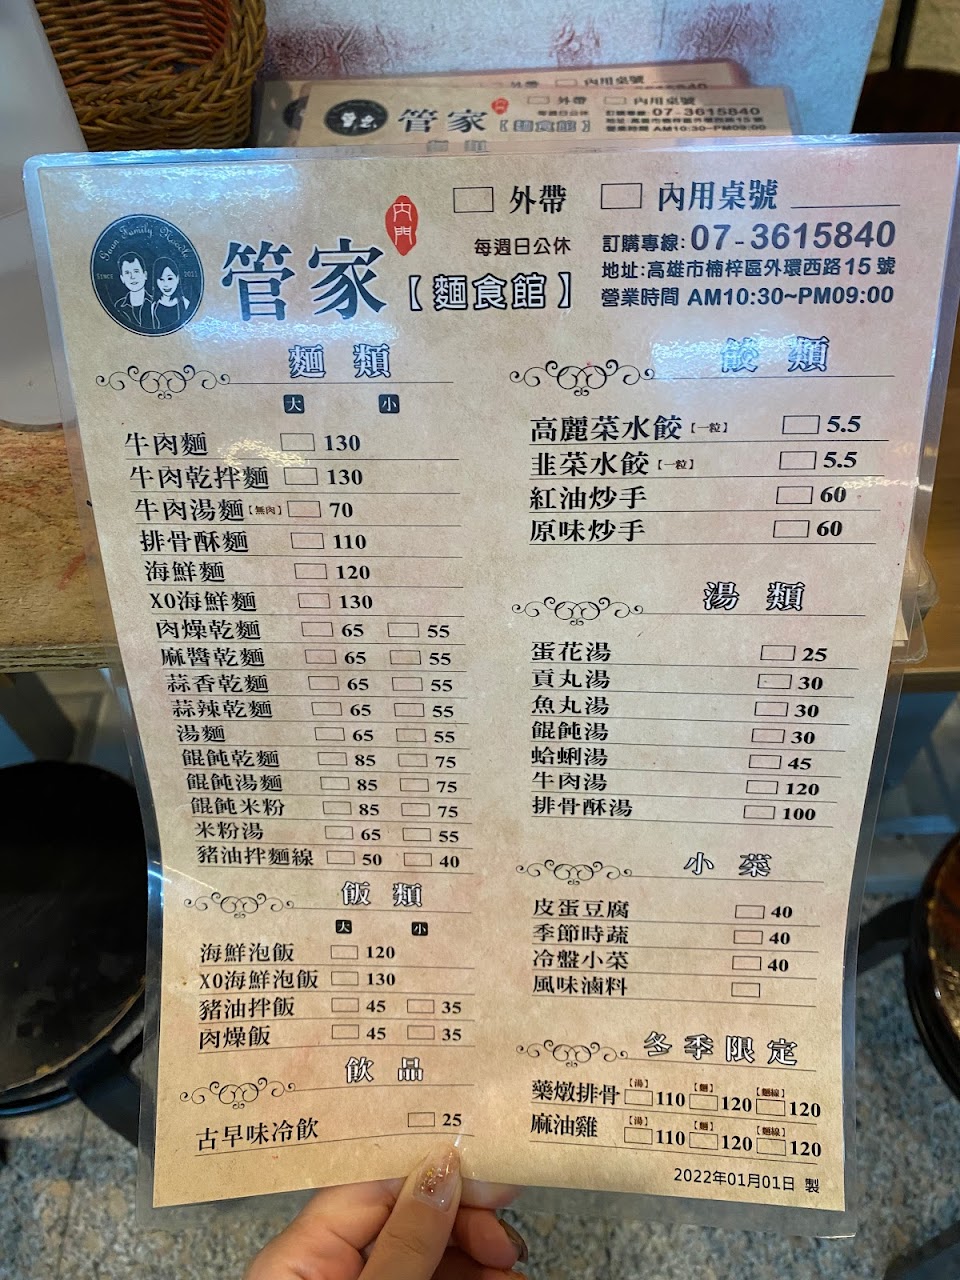 外帶 內用桌號
管家 內門 每週日公休 訂購專線:07-3615840
【麵食館】 地址:高雄市楠梓區外環西路15號
營業時間 AM10:30~PM09:00
□ 外帶 □ 內用桌號 ______
Guan Family Noodle
SINCE 2011
管家
內門
每週日公休
【麵食館】
訂購專線:07-3615840
地址:高雄市楠梓區外環西路15號
營業時間 AM10:30~PM09:00
麵類
大 小
牛肉麵 □ 130
牛肉乾拌麵 □ 130
牛肉湯麵【無肉】 □ 70
排骨酥麵 □ 110
海鮮麵 □ 120
XO海鮮麵 □ 130
肉燥乾麵 □ 65 □ 55
麻醬乾麵 □ 65 □ 55
蒜香乾麵 □ 65 □ 55
蒜辣乾麵 □ 65 □ 55
湯麵 □ 65 □ 55
餛飩乾麵 □ 85 □ 75
餛飩湯麵 □ 85 □ 75
餛飩米粉 □ 85 □ 75
米粉湯 □ 65 □ 55
豬油拌麵線 □ 50 □ 40
飯類
大 小
海鮮泡飯 □ 120
XO海鮮泡飯 □ 130
豬油拌飯 □ 45 □ 35
肉燥飯 □ 45 □ 35
飲品
古早味冷飲 □ 25
餃類
高麗菜水餃【一粒】 □ 5.5
韭菜水餃【一粒】 □ 5.5
紅油炒手 □ 60
原味炒手 □ 60
湯類
蛋花湯 □ 25
貢丸湯 □ 30
魚丸湯 □ 30
餛飩湯 □ 30
蛤蜊湯 □ 45
牛肉湯 □ 120
排骨酥湯 □ 100
小菜
皮蛋豆腐 □ 40
季節時蔬 □ 40
冷盤小菜 □ 40
風味滷料 □
冬季限定
藥燉排骨 【湯】□ 110 【麵】□ 120 【麵線】□ 120
麻油雞 【湯】□ 110 【麵】□ 120 【麵線】□ 120
2022年01月01日 製